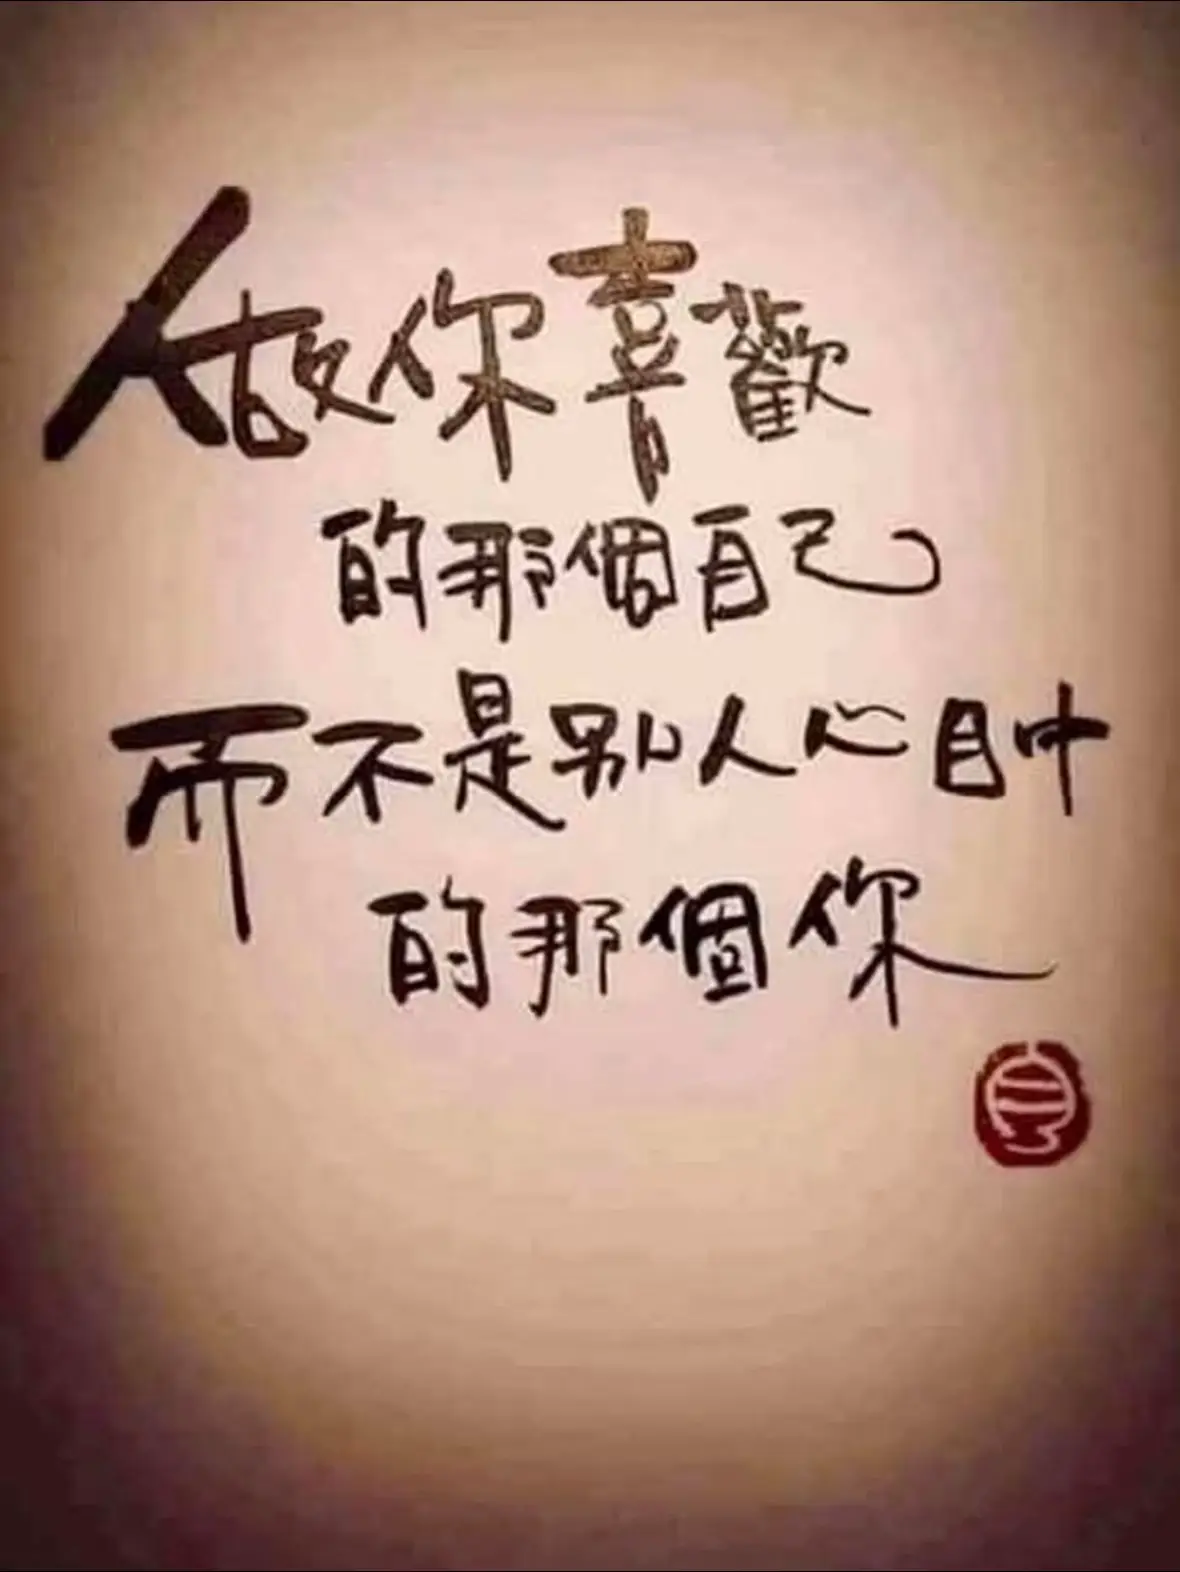 做你喜歡
的那個自己
而不是別人心目中
的那個你